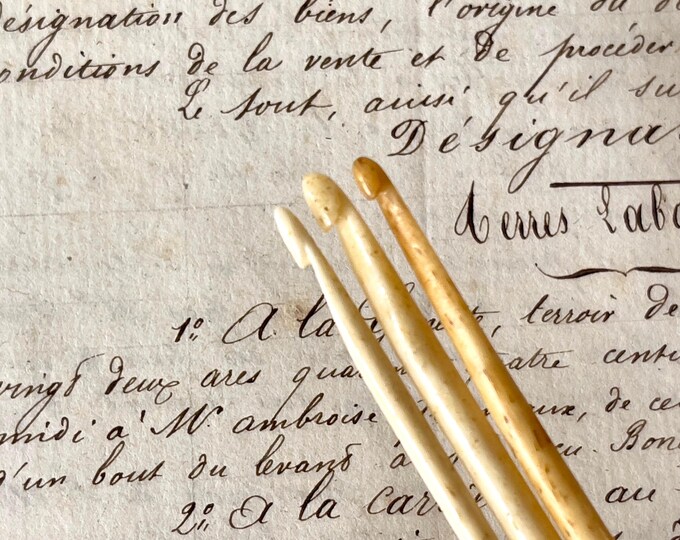 désignation des biens, l'origine ou
conditions de la vente et de procéder
Le tout, ainsi qu'il
Désigna
terres Labo
1º. A la terroir de
vingt deux ares quatre cent
midi à Mr. ambroise de ce
d'un bout du levant à Bon
2º. a la car au